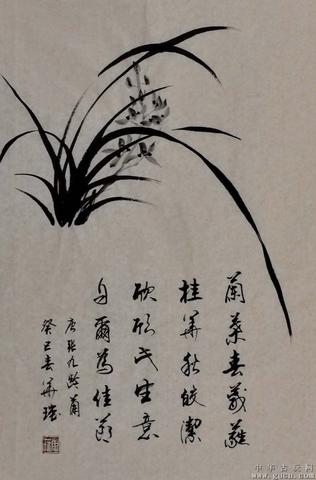 蘭葉春葳蕤
桂華秋皎潔
欣欣此生意
自爾為佳節
唐張九齡
癸巳春華
中华古玩网
www.gucn.com